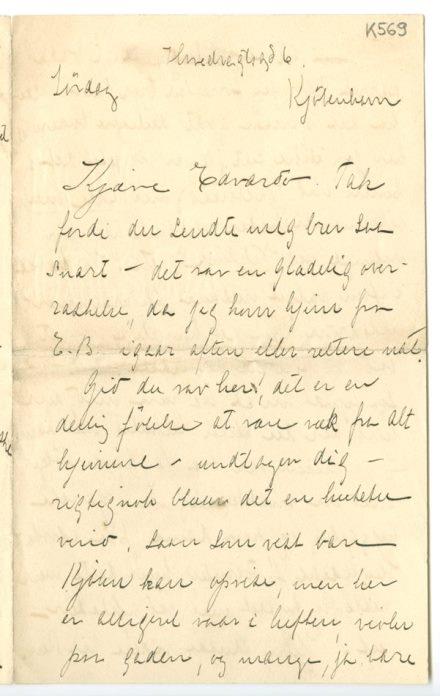 K569
6.
Søndag
Kjøbenhavn
Kjære Edvard. Tak
fordi du sendte meg brev saa
snart – det var en gladelig over-
raskelse, da jeg kom hjem fra
E.B. igaar aften eller rettere nat.
Gid du var her! det er en
deilig følelse at være væk fra alt
hjemme – undtagen dig –
rigtignok blæser det en
vind, saan som vist bare
Kjøben kan opvise, men her
er alligevel vaar i luften violer
paa gaden, og mange, ja bare